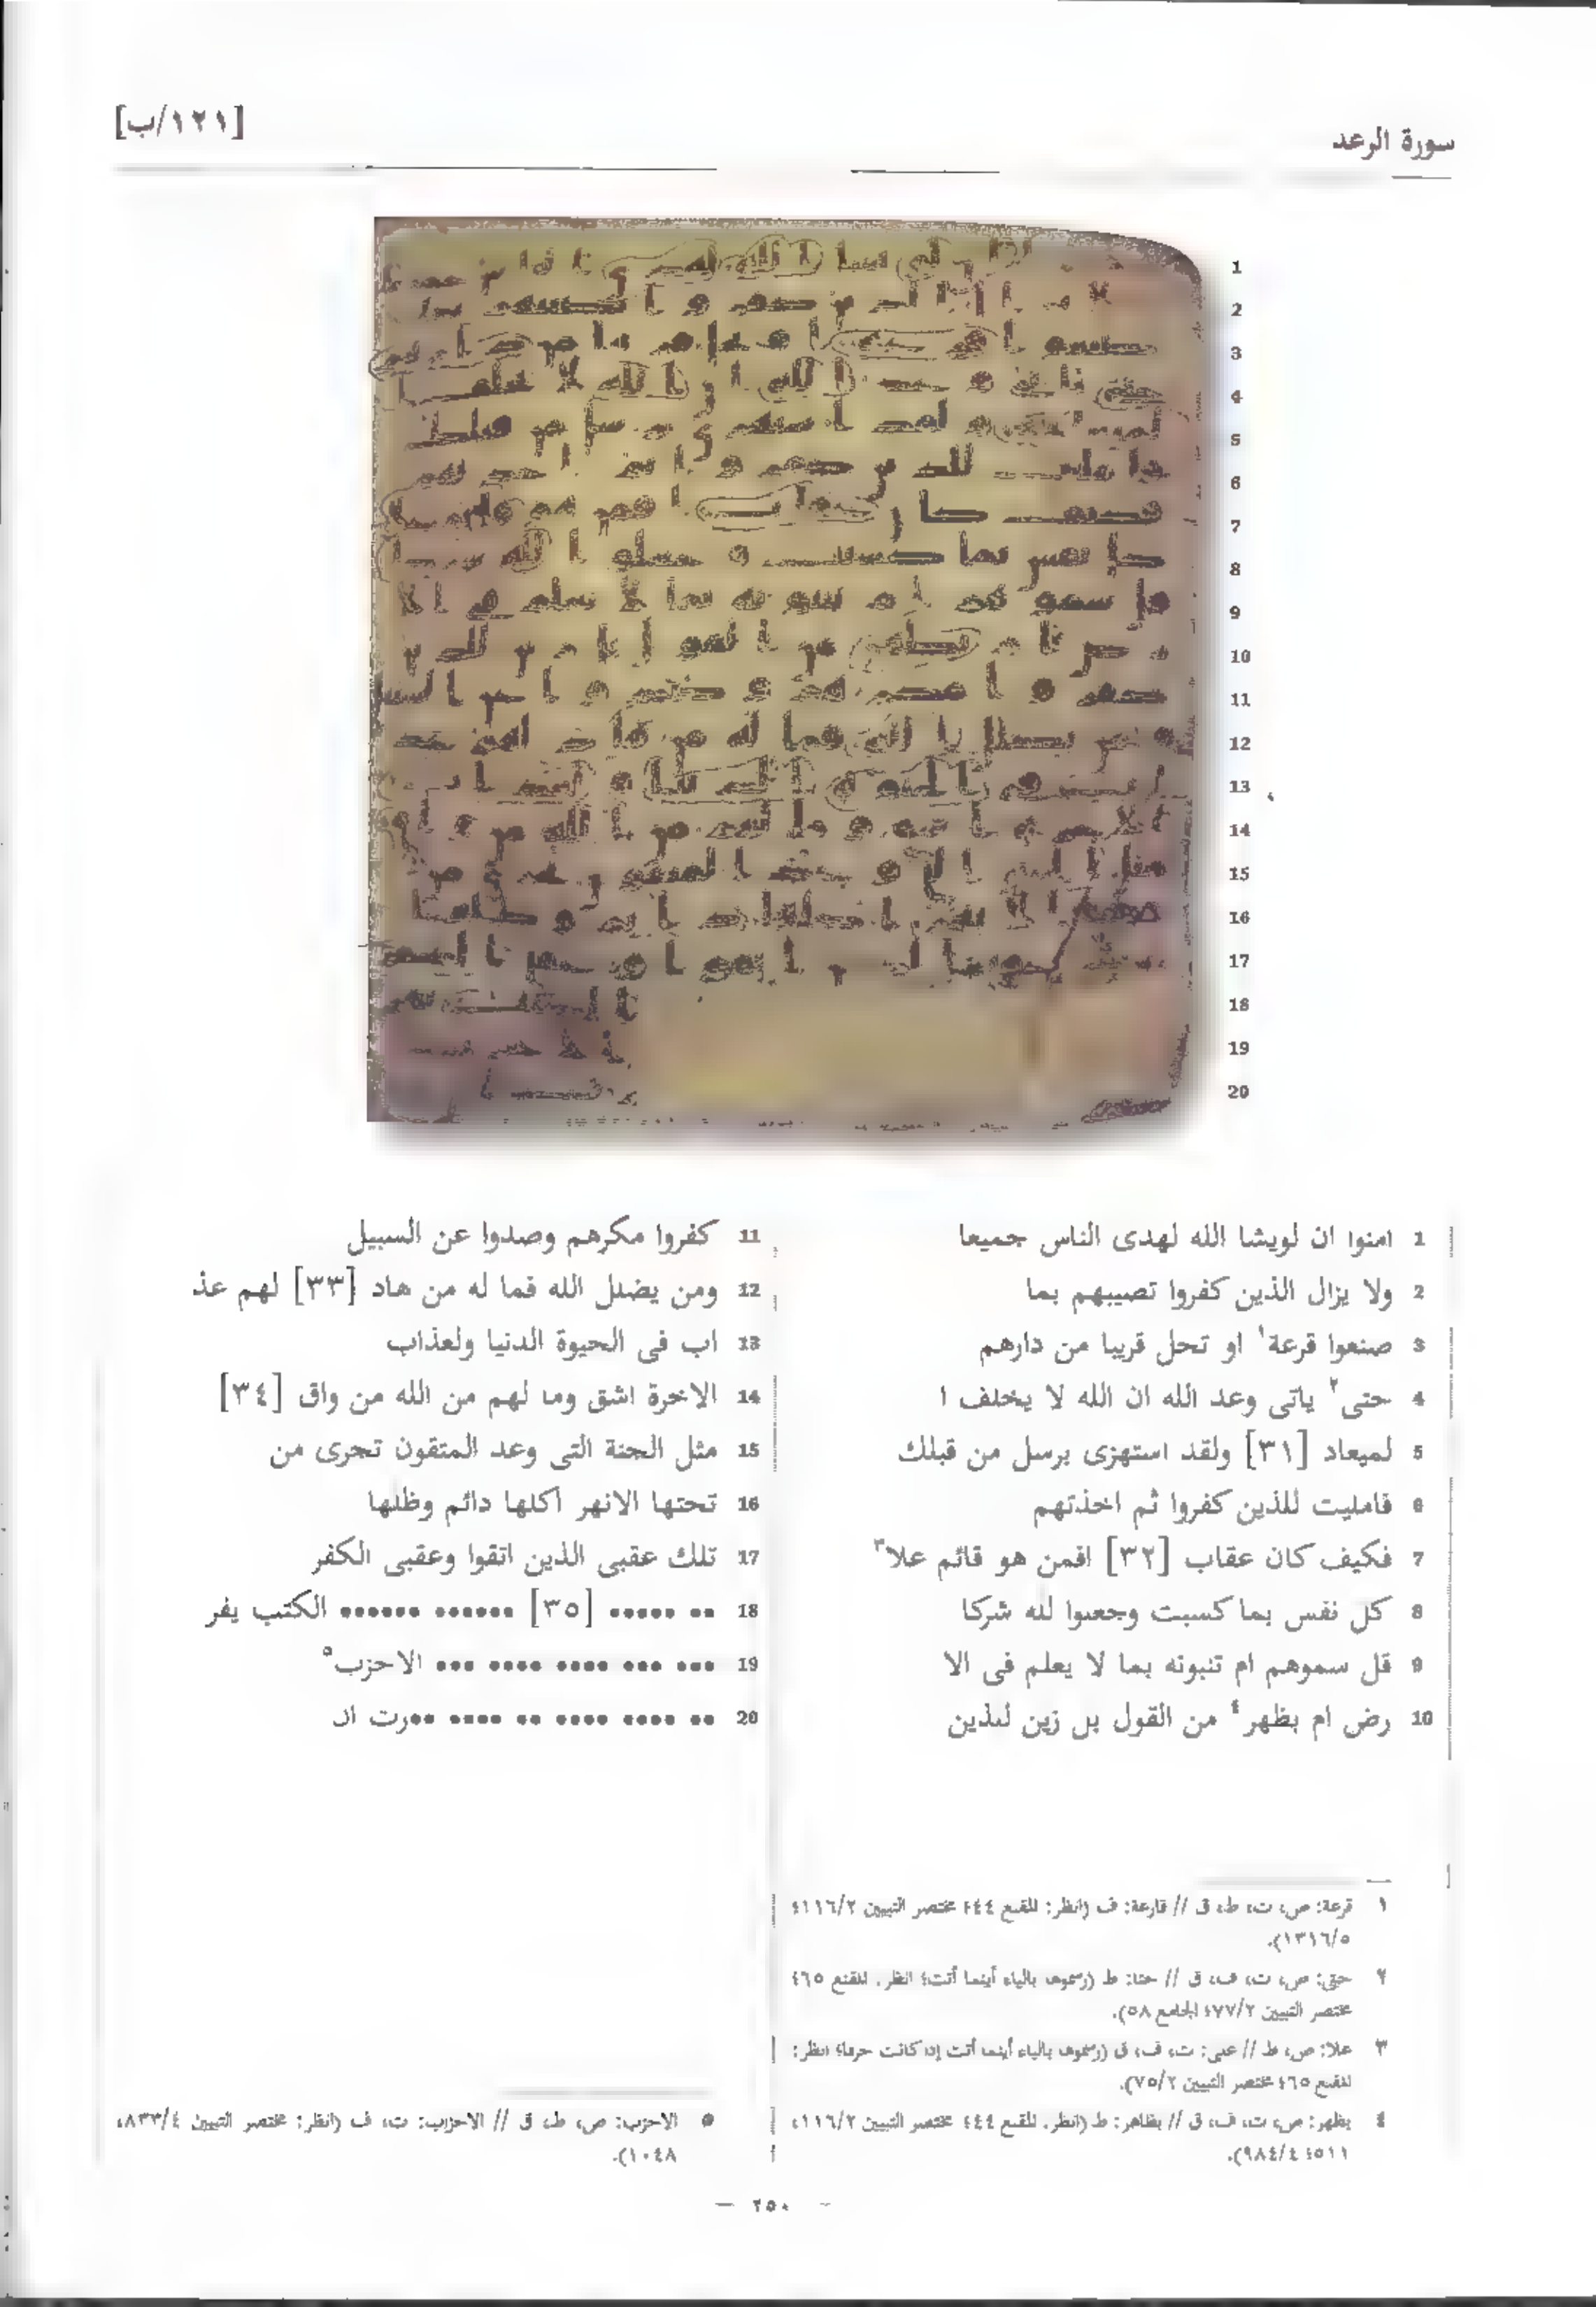 سورة الرعد
[١٢١/ب]
1 امنوا ان لويشا الله لهدى الناس جميعا
2 ولا يزال الذين كفروا تصيبهم بما
3 صنعوا قرعة١ او تحل قريبا من دارهم
4 حتى٢ ياتى وعد الله ان الله لا يخلف ا
5 لميعاد [٣١] ولقد استهزى برسل من قبلك
6 فامليت للذين كفروا ثم اخذتهم
7 فكيف كان عقاب [٣٢] افمن هو قائم علا٣
8 كل نفس بما كسبت وجعلوا لله شركا
9 قل سموهم ام تنبونه بما لا يعلم فى الا
10 رض ام بظهر٤ من القول بل زين للذين
11 كفروا مكرهم وصدوا عن السبيل
12 ومن يضلل الله فما له من هاد [٣٣] لهم عذ
13 اب فى الحيوة الدنيا ولعذاب
14 الاخرة اشق وما لهم من الله من واق [٣٤]
15 مثل الجنة التى وعد المتقون تجرى من
16 تحتها الانهر اكلها دائم وظلها
17 تلك عقبى الذين اتقوا وعقبى الكفر
18 •• ••••• [٣٥] •••••• •••••• الكتب يفر
19 ••• ••• •••• •••• ••• الاحزب٥
20 •• •••• •••• •• •••• ••رت ان
١ قرعة: ص، ت، ط، ق // قارعة: ف (انظر: المقنع ٤٤٤ مختصر التبيين ١١٦/٢؛
١٣١٦/٥).
٢ حتى: ص، ت، ف، ق // حتا: ط (رسموها بالياء أينما أتت؛ انظر: المقنع ٤٦٥
مختصر التبيين ٧٧/٢؛ الجامع ٥٨).
٣ علا: ص، ط // على: ت، ف، ق (رسموها بالياء أينما أتت إذا كانت حرفا؛ انظر:
المقنع ٤٦٥ مختصر التبيين ٧٥/٢).
٤ بظهر: ص، ت، ف، ق // بظاهر: ط (انظر: المقنع ٤٤٤ مختصر التبيين ١١٦/٢؛
٥١١؛ ٩٨٤/٤).
٥ الاحزب: ص، ط، ق // الاحزاب: ت، ف (انظر: مختصر التبيين ٨٣٣/٤؛
١٠٤٨).
— ٢٥٠ —